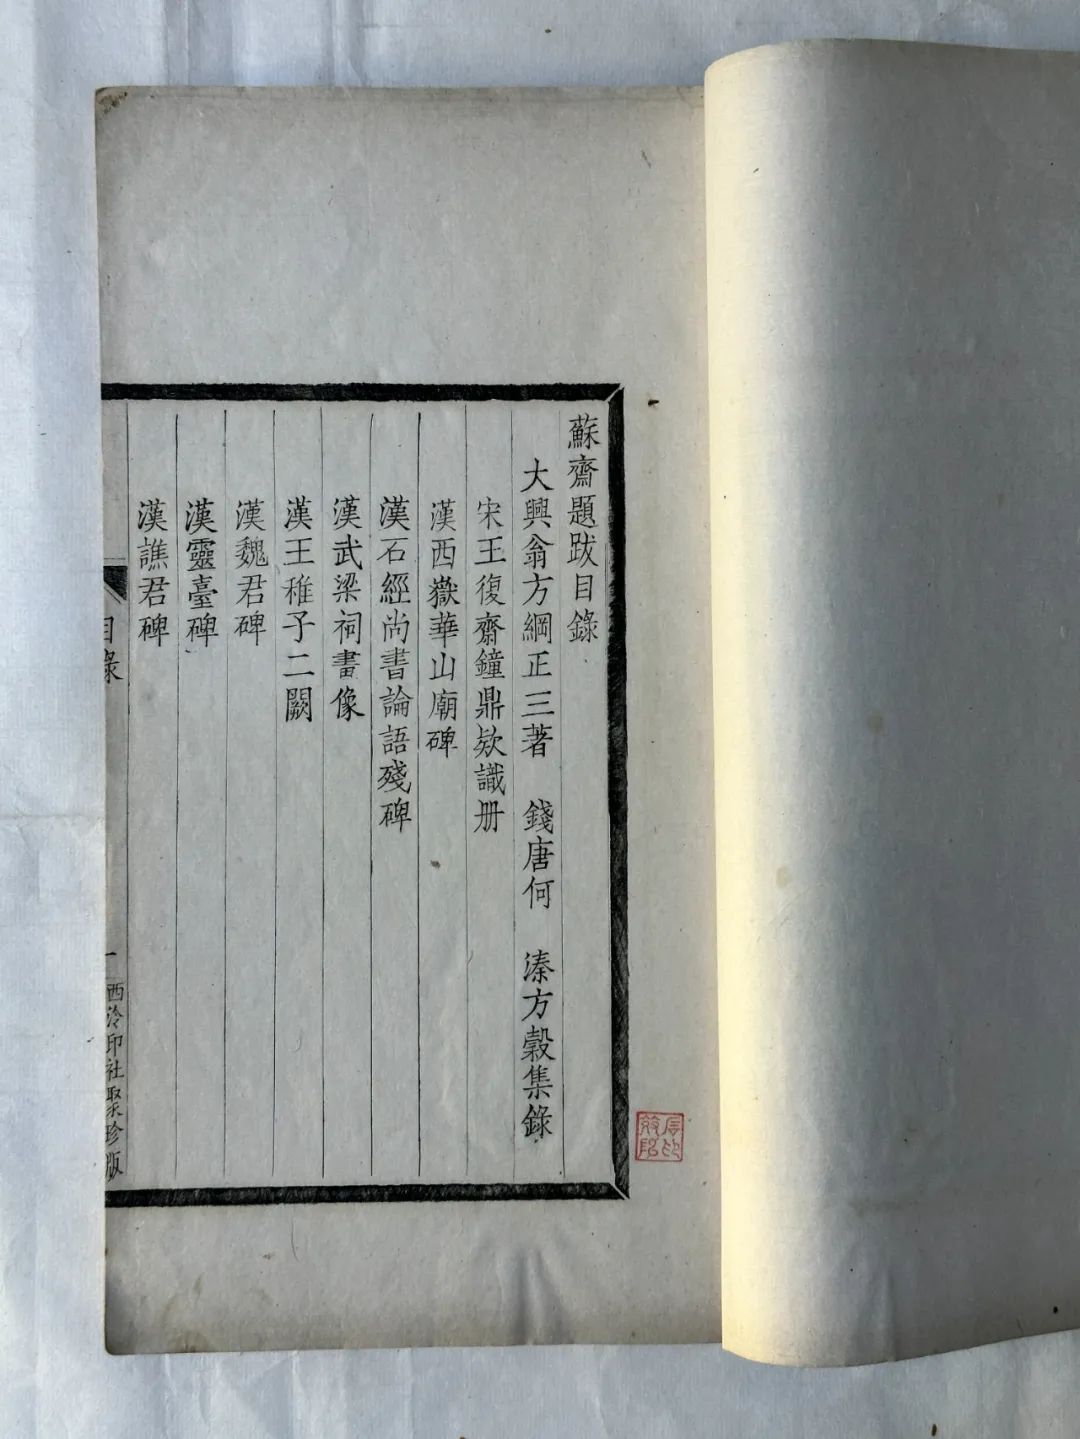 蘇齋題跋目錄
大興翁方綱正三著　錢唐何　溱方穀集錄
宋王復齋鐘鼎欵識册
漢西嶽華山廟碑
漢石經尚書論語殘碑
漢武梁祠畫像
漢王稚子二闕
漢魏君碑
漢靈臺碑
漢譙君碑
目錄
一
西泠印社聚珍版